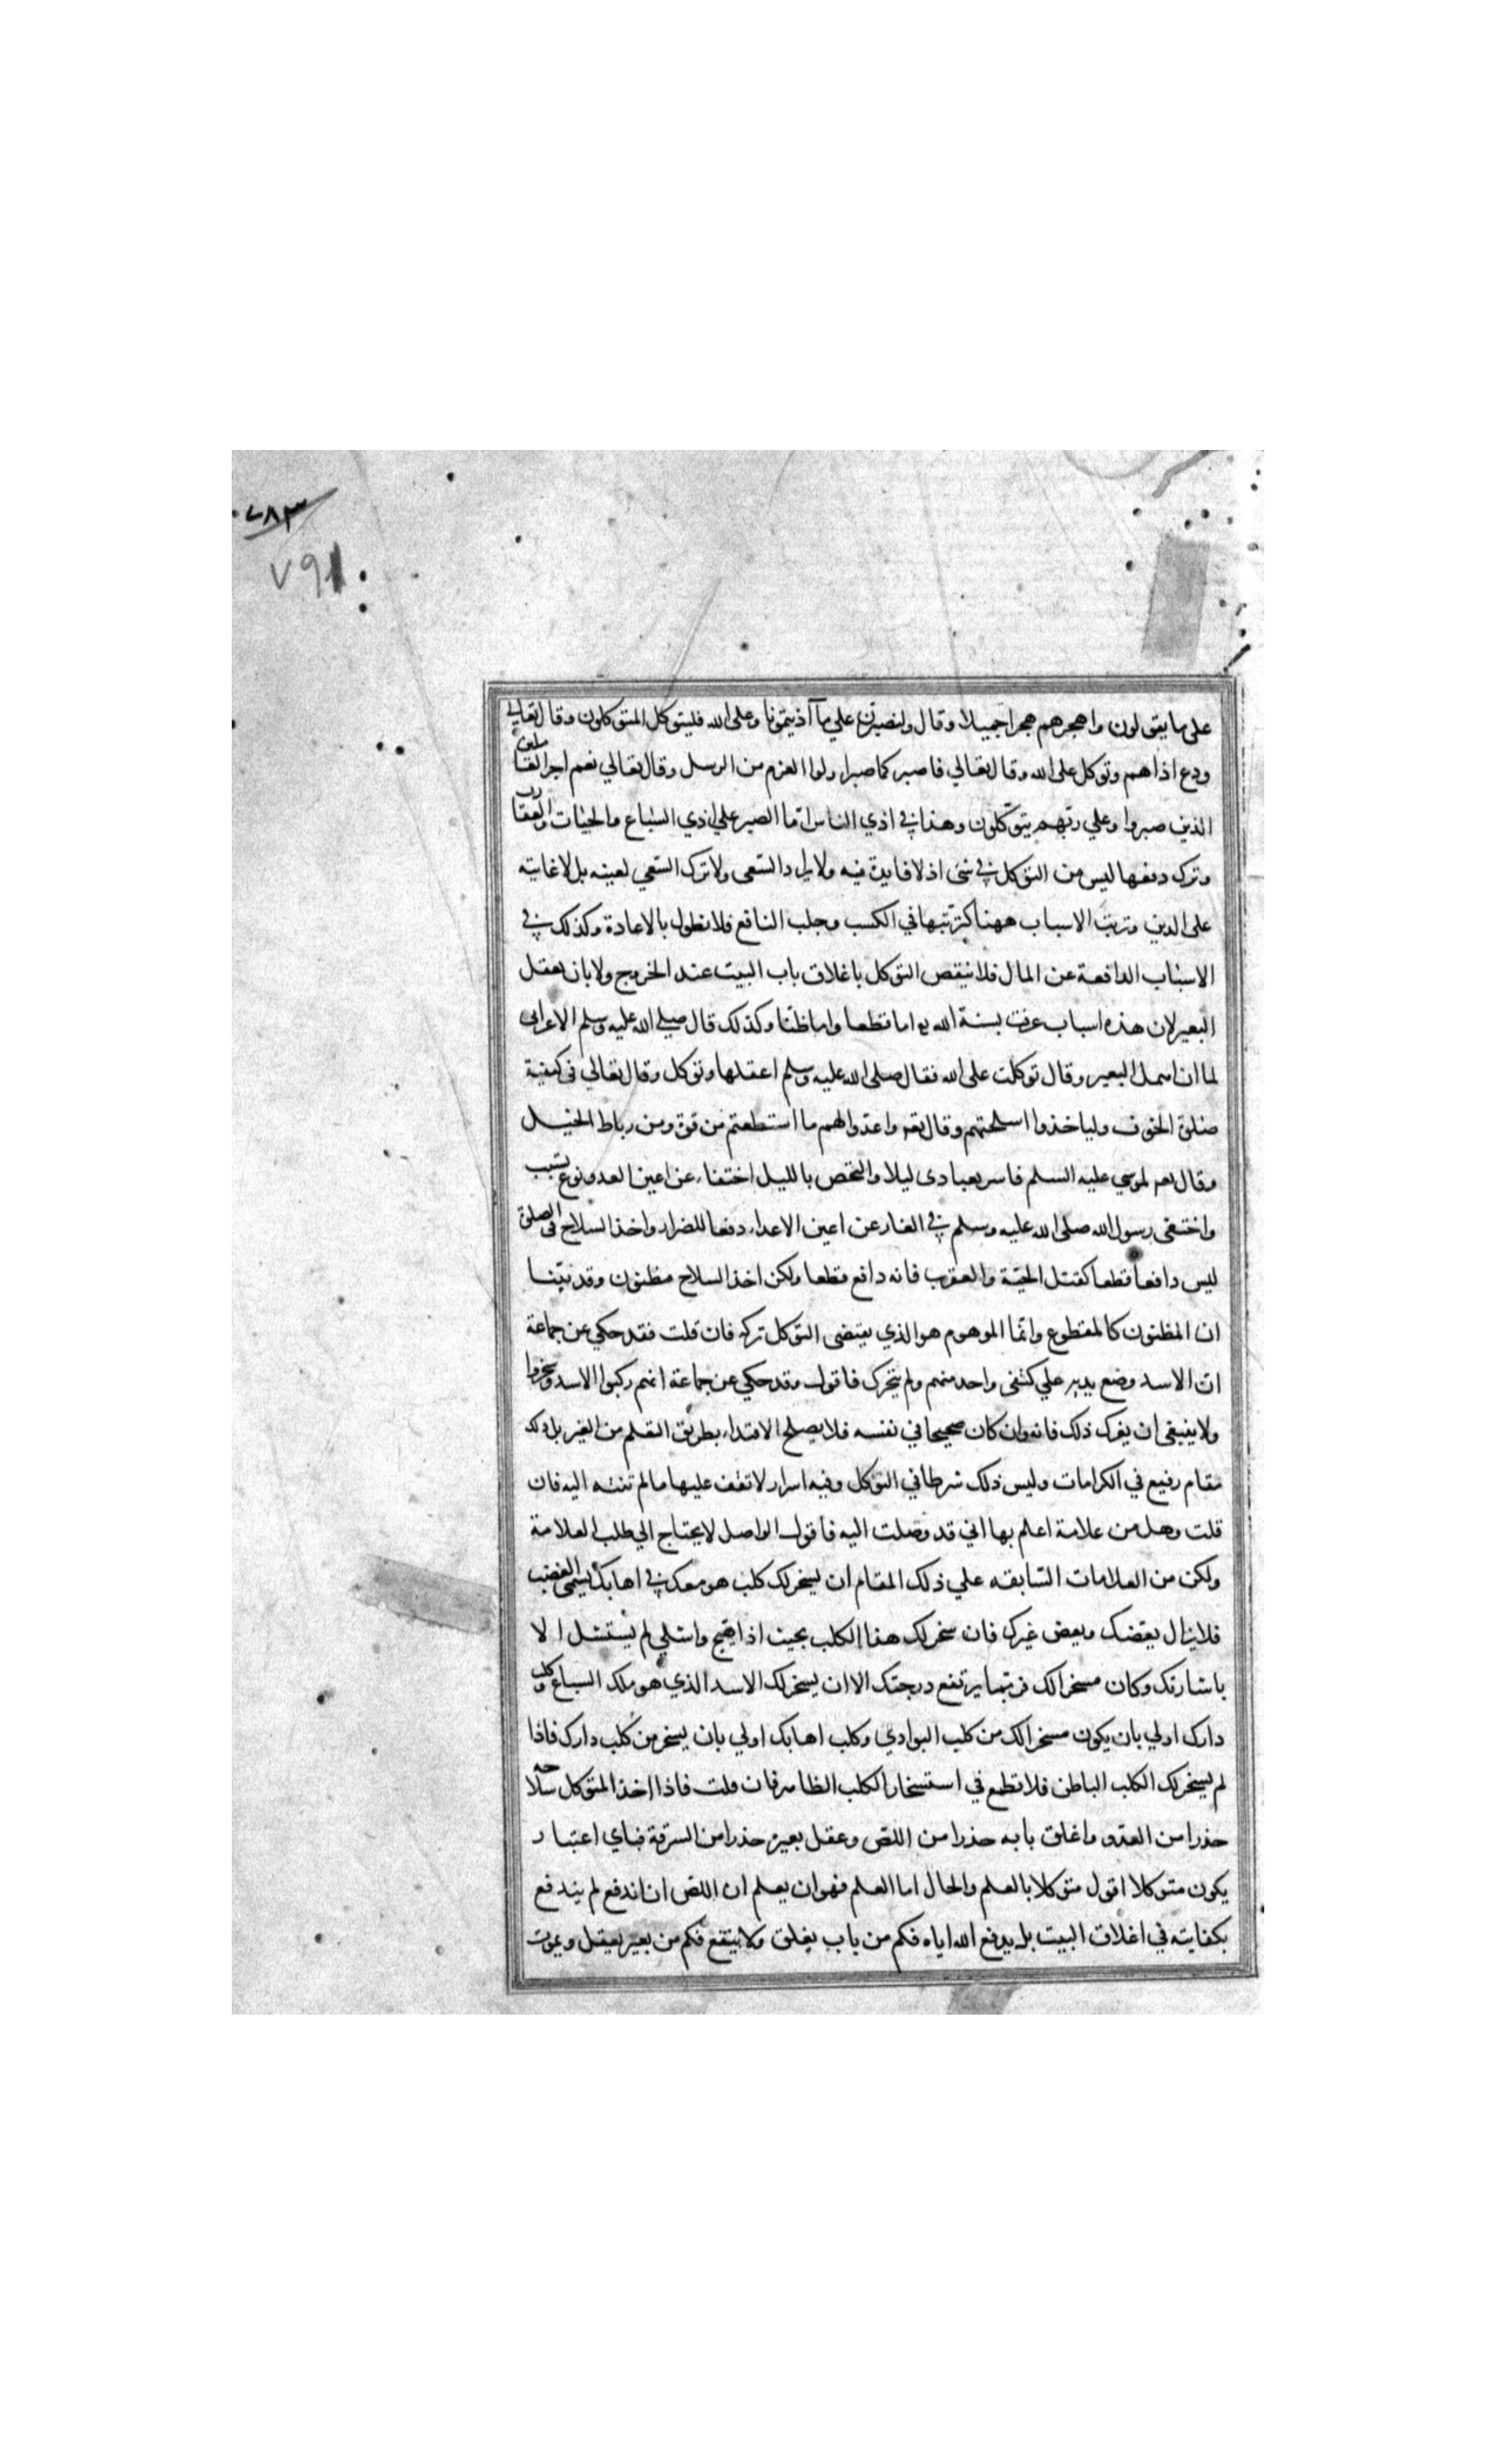 ٧٨٣
٧٩١
على ما يقولون واهجرهم هجرا جميلا وقال ولنصبرن علي ما آذيتمونا وعلى الله فليتوكل المتوكلون وقال تعالي
ودع اذاهم وتوكل على الله وقال تعالي فاصبر كما صبر اولوا العزم من الرسل وقال تعالي نعم اجر العاملين
الذين صبروا وعلي ربهم يتوكلون وهذا في اذي الناس اما الصبر علي اذي السباع والحيات والعقارب
وترك دفعها ليس من التوكل في شئ اذ لا فايدة فيه ولا يراد السعى ولا ترك السعي لعينه بل لاغانته
على الدين وترتب الاسباب ههنا كترتبها في الكسب وجلب النافع فلا نطول بالاعادة وكذلك في
الاسباب الدافعة عن المال فلا ينقص التوكل باغلاق باب البيت عند الخروج ولا بان يعقل
البعير لان هذه اسباب عرفت بسنة الله اما قطعا واما ظنا وكذلك قال صلي الله عليه وسلم الاعرابى
لما ان اهمل البعير وقال توكلت على الله فقال صلى الله عليه وسلم اعقلها وتوكل وقال تعالي فى كيفية
صلوة الخوف ولياخذوا اسلحتهم وقال تعه واعدوا لهم ما استطعتم من قوة ومن رباط الخيل
وقال تعه لموسي عليه السلم فاسر بعبادى ليلا والتحصن بالليل اختفاء عن اعين العدو نوع تسبب
واختفى رسول الله صلى الله عليه وسلم في الغار عن اعين الاعداء دفعا للضرار واخذ السلاح فى الصلوة
ليس دافعا قطعا كقتل الحية والعقرب فانه دافع قطعا ولكن اخذ السلاح مظنون وقد بينا
ان المظنون كالمقطوع وانما الموهوم هو الذي يقتضى التوكل تركه فان قلت فقد حكي عن جماعة
ان الاسد وضع يديه علي كتفى واحد منهم ولم يتحرك فاقول وقد حكي عن جماعة انهم ركبوا الاسد وسخروا
ولا ينبغى ان يغرك ذلك فانه وان كان صحيحا في نفسه فلا يصلح الاقتداء بطريق التعلم من الغير بل ذلك
مقام رفيع في الكرامات وليس ذلك شرطا في التوكل وفيه اسرار لا تقف عليها مالم تنته اليه فان
قلت وهل من علامة اعلم بها اني قد وصلت اليه فاقول الواصل لا يحتاج الي طلب العلامة
ولكن من العلامات السابقه علي ذلك المقام ان يسخر لك كلب هو معك في اهابك يسمى الغضب
فلا يزال يعضك وبعض غيرك فان سخر لك هذا الكلب بحيث اذا هيج واشلي لم يستشل الا
باشارتك وكان مسخرا لك فربما يرتفع درجتك الا ان يسخر لك الاسد الذي هو ملك السباع وكلب
دارك اولي بان يكون مسخرا لك من كلب البوادي وكلب اهابك اولي بان يسخر من كلب دارك فاذا
لم يسخر لك الكلب الباطن فلا تطمع في استسخار الكلب الظاهر فان قلت فاذا اخذ المتوكل سلاحه
حذرا من العدو واغلق بابه حذرا من اللص وعقل بعيره حذرا من السرقة فباي اعتبار
يكون متوكلا اقول متوكلا بالعلم والحال اما العلم فهو ان يعلم ان اللص ان اندفع لم يندفع
بكفايته في اغلاق البيت بل يدفع الله اياه فكم من باب يغلق ولا ينفع فكم من بعير يعقل ويموت